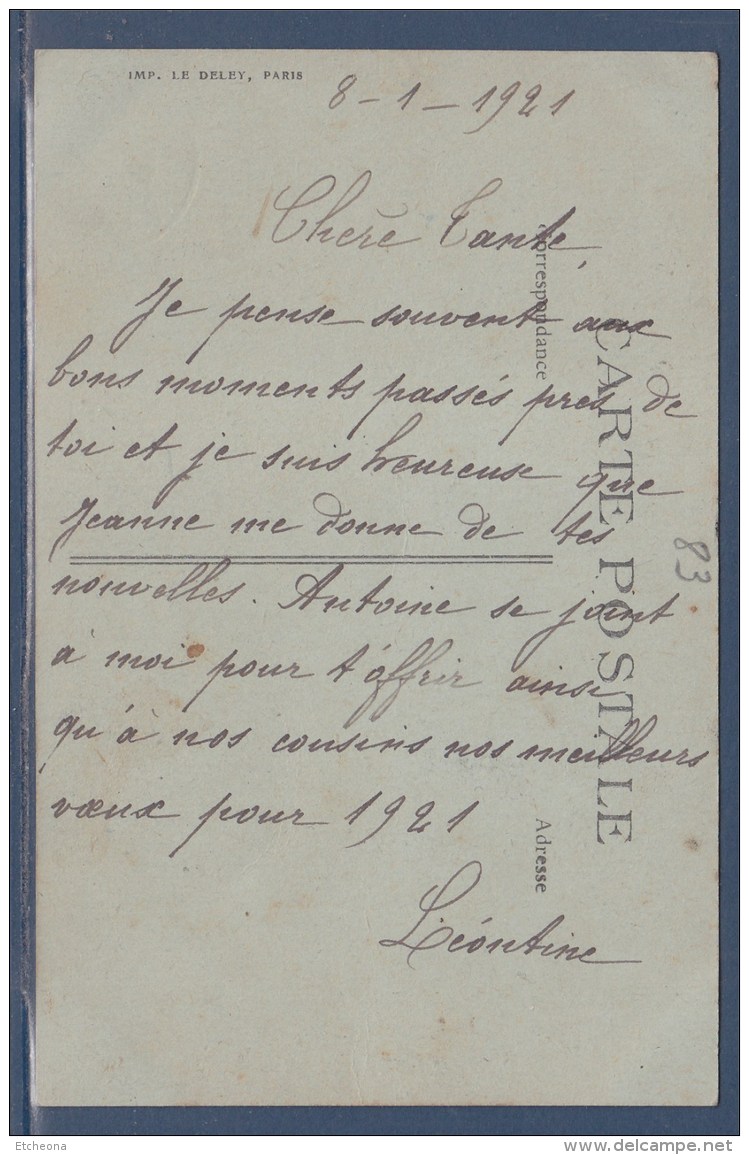 IMP. LE DELEY, PARIS
8-1-1921
Chère Tante,
Je pense souvent aux
bons moments passés près de
toi et je suis heureuse que
Jeanne me donne de tes
nouvelles. Antoine se joint
à moi pour t'offrir ainsi
qu'à nos cousins nos meilleurs
vœux pour 1921
Léontine
Correspondance
CARTE POSTALE
Adresse
83
Etcheona
www.delcampe.net